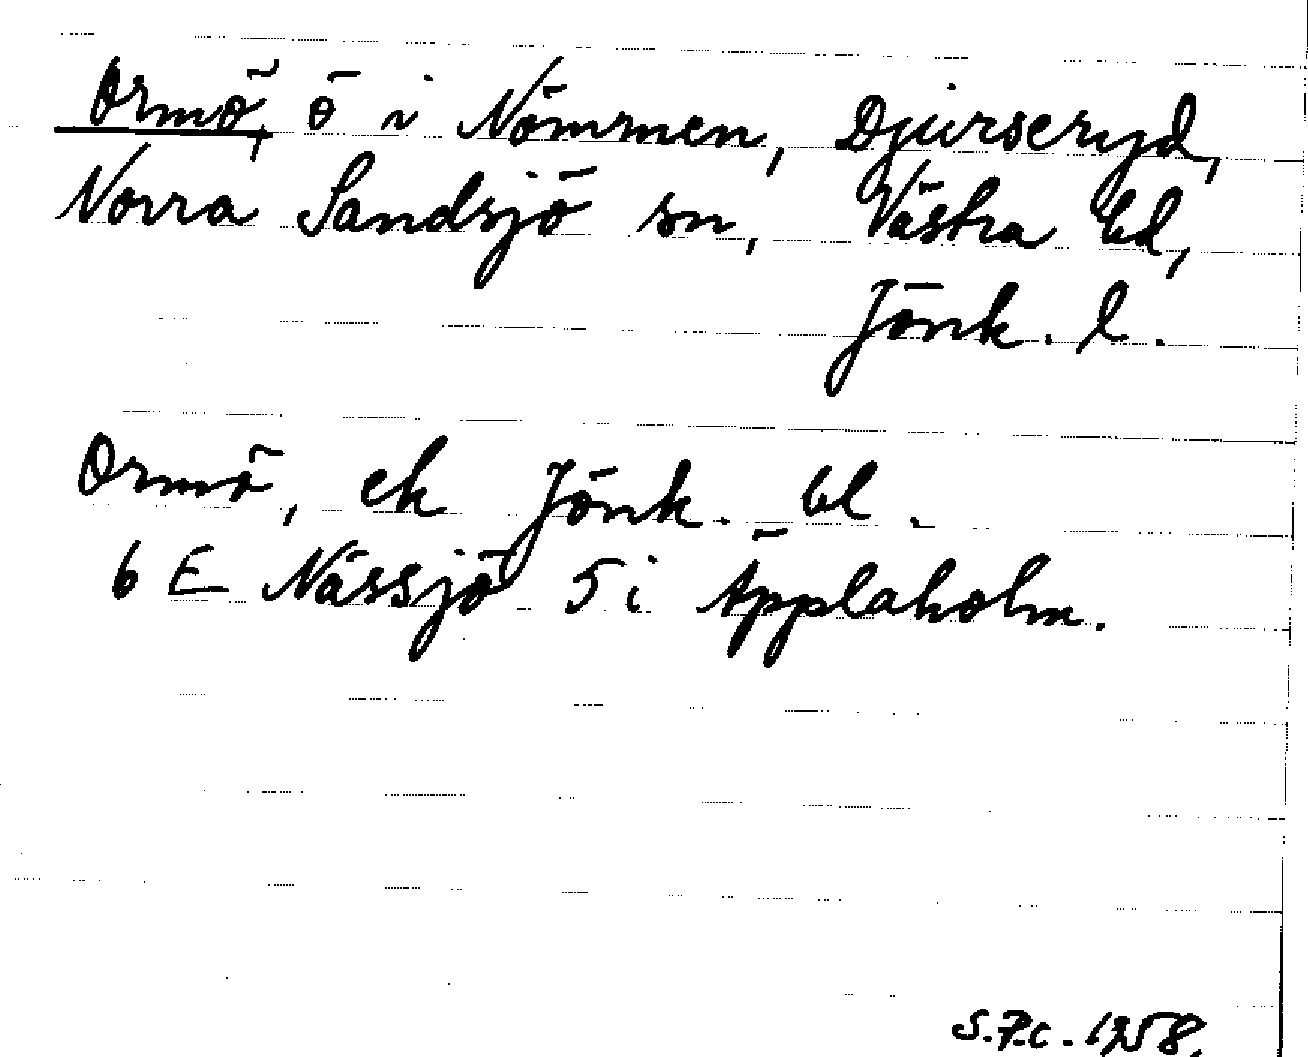 Ormö, ö i Nömmen, Djurseryd,
Norra Sandsjö sn, Västra hd,
Jönk. l.
Ormö, ek Jönk. bl.
6 E Nässjö 5 i Äpplaholm.
1958.